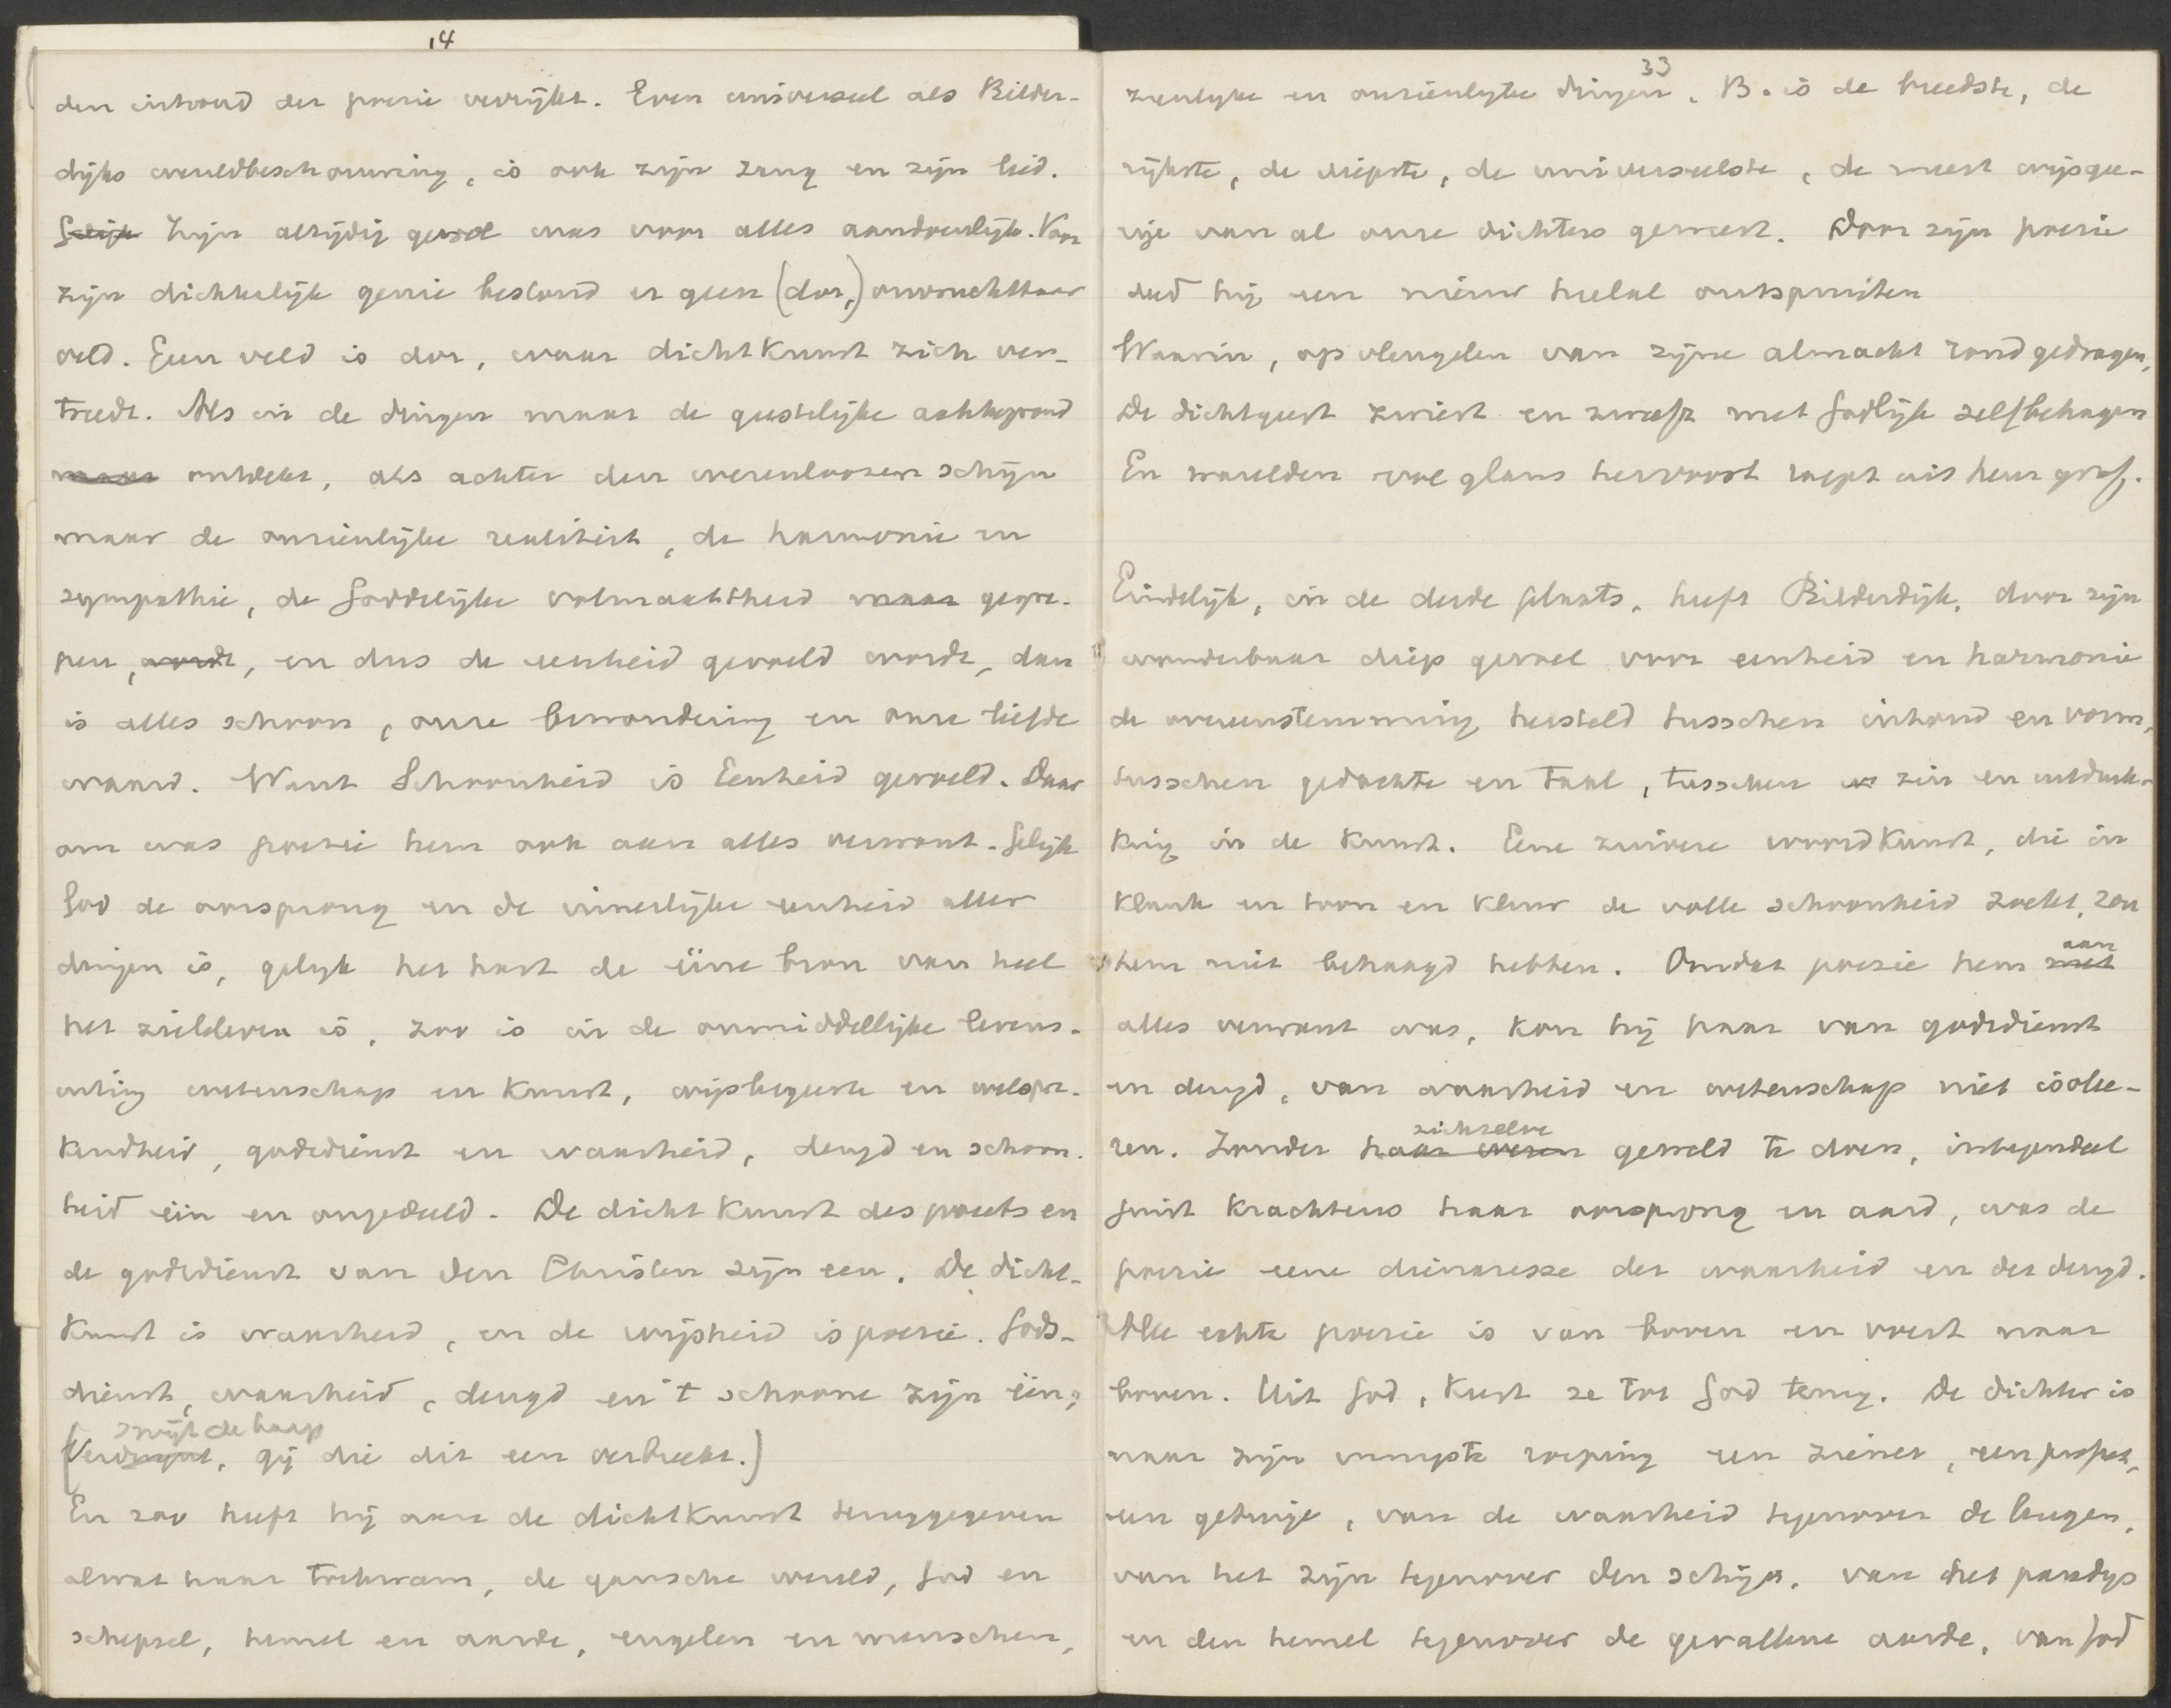 14
den inhoud der poezie verrijkt. Even universeel als Bilder-
dijks wereldbeschouwing, is ook zijn zang en zijn lied.
Gelijk Zijn alzijdig gevoel was voor alles aandoenlijk. Voor
zijn dichterlijk genie bestond er geen (dor,) onvruchtbaar
veld. Geen veld is dor, waar dichtkunst zich ver-
treedt. Als in de dingen maar de geestelijke achtergrond
maar ontdekt, als achter den wezenloozen schijn
maar de onzienlijke realiteit, de harmonie en
sympathie, de Goddelijke volmaaktheid maar gegre-
pen, wordt, en dus de eenheid gevoeld wordt, dan
is alles schoon, onze bewondering en onze liefde
waard. Want Schoonheid is Eenheid gevoeld. Daar
om was poezie hem ook aan alles verwant. Gelijk
God de oorsprong en de innerlijke eenheid aller
dingen is, gelijk het hart de ééne bron van heel
het zieleleven is, zoo is in de onmiddellijke levens-
uiting wetenschap en kunst, wijsbegeerte en welspre-
kendheid, godsdienst en waarheid, deugd en schoon-
heid één en ongedeeld. De dichtkunst des poeets en
de godsdienst van den Christen zijn een. De dicht-
kunst is waarheid, en de wijsheid is poezie. Gods-
dienst, waarheid, deugd en 't schoone zijn één;
smijt de harp
(Verdwijnt, gij die dit een verbreekt.)
En zoo heeft hij aan de dichtkunst teruggegeven
alwat haar toekwam, de gansche wereld, God en
schepsel, hemel en aarde, engelen en menschen,
33
zienlijke en onzienlijke dingen. B. is de breedste, de
rijkste, de diepste, de universeelste, de meest wijsgee-
rije van al onze dichters geweest. Door zijn poezie
deed hij een nieuw heelal ontspruiten
Waarin, op vleugelen van zijne almacht rondgedragen,
De dichtgeest zwiert en zweeft met Godlijk zelfbehagen
En waerelden vol glans hervoort roept uit heur graf.
Eindelijk, in de derde plaats, heeft Bilderdijk, door zijn
wonderbaar diep gevoel voor eenheid en harmonie
de overeenstemming hersteld tusschen inhoud en vorm,
tusschen gedachte en taal, tusschen zin en uitdruk-
king in de kunst. Eene zuivere woordkunst, die in
klank en toon en kleur de volle schoonheid zoekt, zou
hem niet behaagd hebben. Omdat poezie hem met aan
alles verwant was, kon hij haar van godsdienst
en deugd, van waarheid en wetenschap niet isolee-
ren. Zonder haar wezen zichzelve geweld te doen, integendeel
juist krachtens haar oorsprong en aard, was de
poezie eene dienaresse der waarheid en der deugd.
Alle echte poezie is van boven en voert naar
boven. Uit God, keert ze tot God terug. De dichter is
naar zijn innigste roeping een ziener, een profeet,
een getuige, van de waarheid tegenover de leugen,
van het zijn tegenover den schijn, van het paradijs
en den hemel tegenover de gevallene aarde, van God